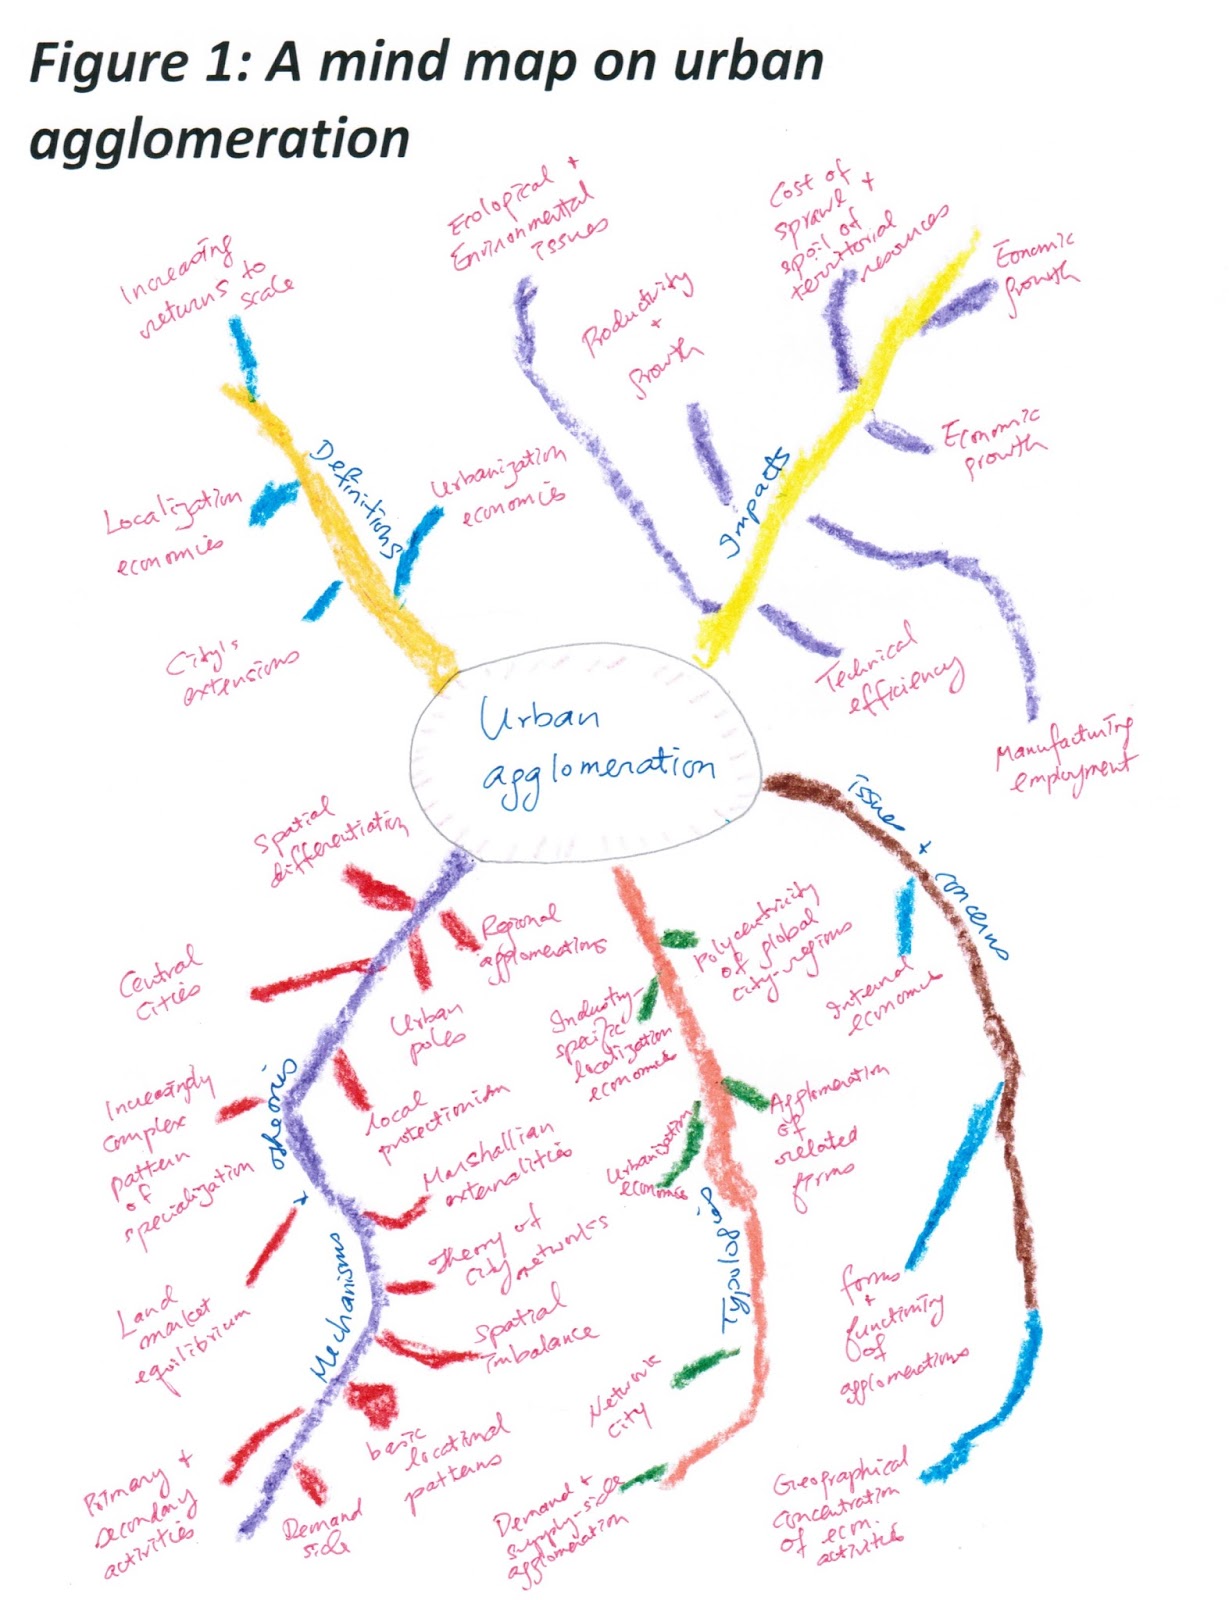 Figure 1: A mind map on urban
agglomeration
Increasing
returns to
scale
Definitions
Localization
economies
Urbanization
economies
City's
extensions
Ecological +
Environmental
issues
Productivity
+
growth
Cost of
sprawl +
spoil of
territorial
resources
Economic
growth
Economic
growth
Impacts
Technical
efficiency
Manufacturing
employment
Urban
agglomeration
issues + concerns
Internal
economies
forms
+
functioning
of
agglomerations
Geographical
concentration
of econ.
activities
Typologies
Polycentricity
of global
city-regions
Industry-
specific
localization
economies
Agglomeration
of
related
firms
Urbanization
economies
Network
city
Demand +
supply-side
agglomeration
Theories
+
Mechanisms
Spatial
differentiation
Regional
agglomerations
Central
cities
Urban
poles
Increasingly
complex
pattern
of
specialization
local
protectionism
Marshallian
externalities
Theory of
city networks
Land
market
equilibrium
Spatial
imbalance
basic
locational
patterns
Primary +
secondary
activities
Demand
side